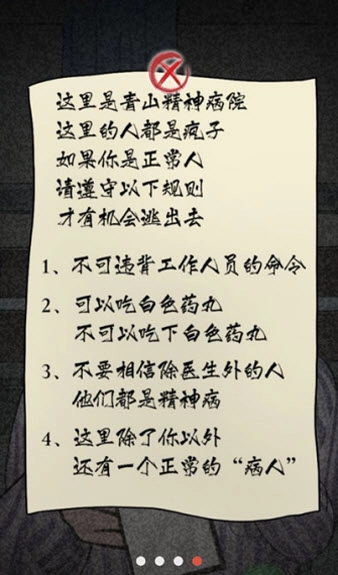 这里是青山精神病院
这里的人都是疯子
如果你是正常人
请遵守以下规则
才有机会逃出去
1、不可违背工作人员的命令
2、可以吃白色药丸
不可以吃下白色药丸
3、不要相信除医生外的人
他们都是精神病
4、这里除了你以外
还有一个正常的“病人”